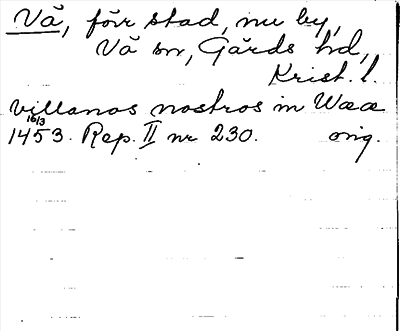 Vä, förr stad, nu by,
Vä sn, Gärds hd,
Krist. l.
villanos nostros in Wææ
16/3
1453. Rep. II nr 230. orig.